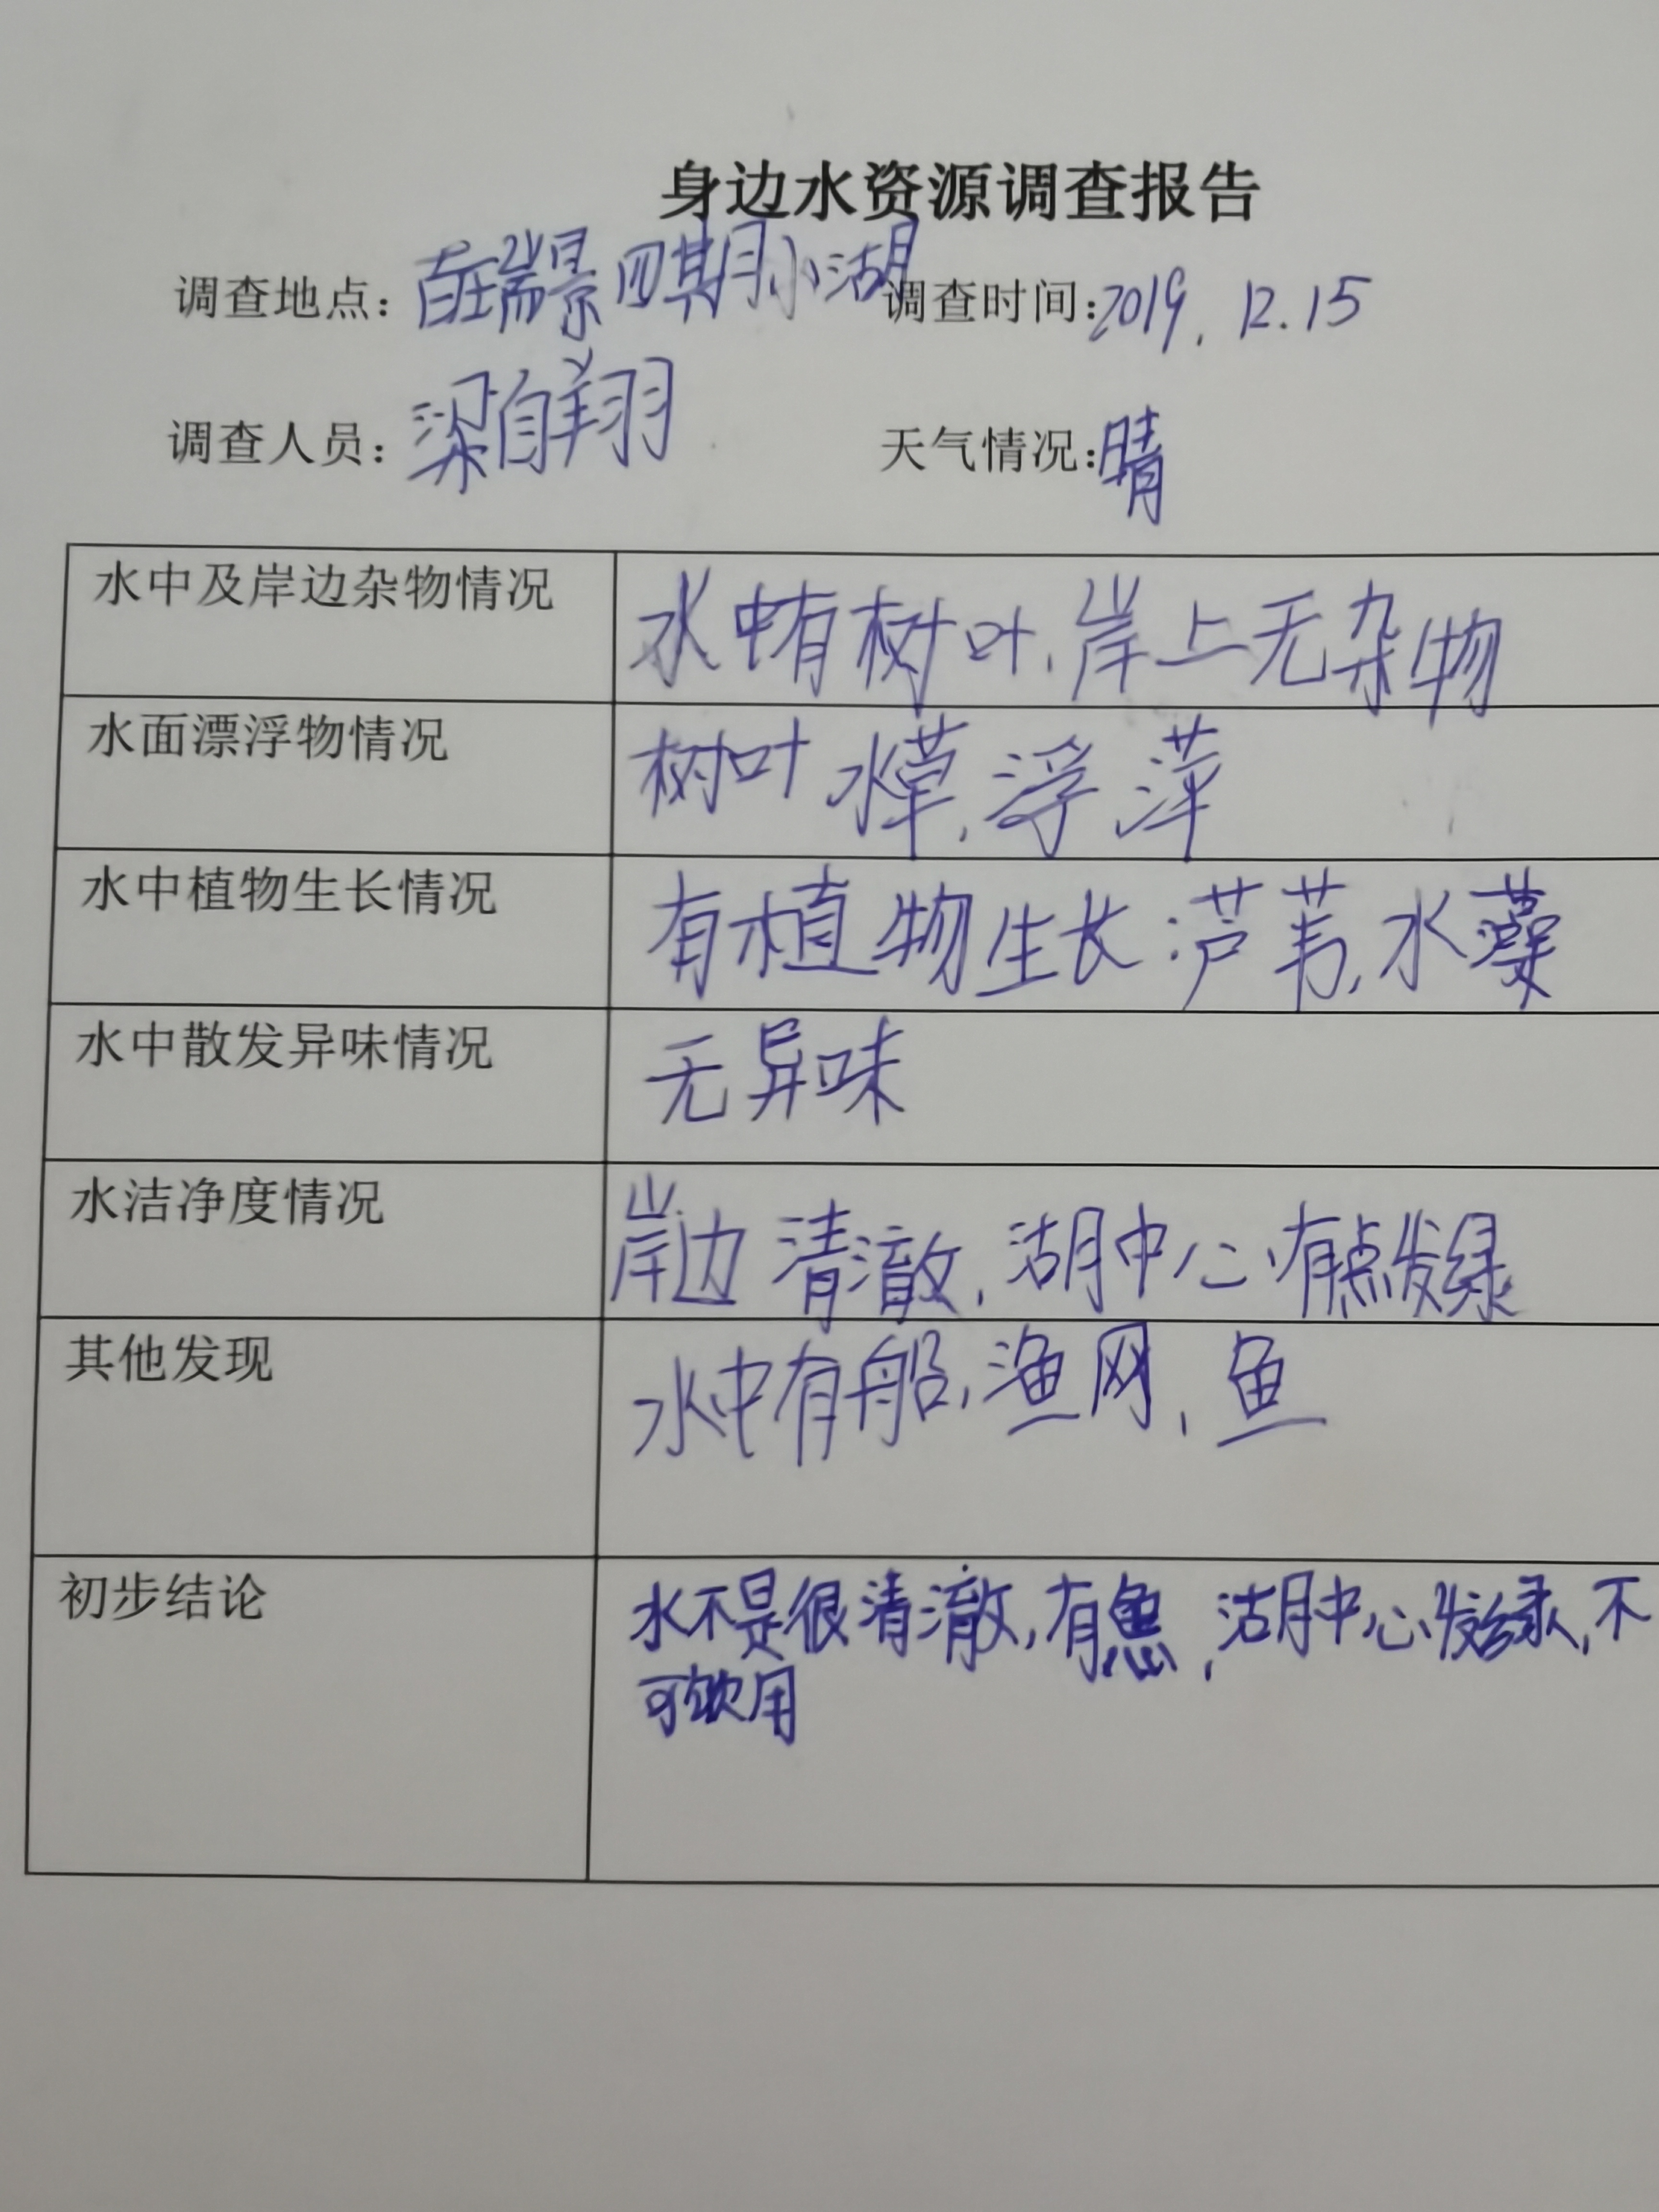 身边水资源调查报告
调查地点：百旺瑞景四期小湖 调查时间：2019.12.15
调查人员：梁自翔 天气情况：晴
水中及岸边杂物情况 水中有树叶，岸上无杂物
水面漂浮物情况 树叶 水草，浮萍
水中植物生长情况 有植物生长：芦苇，水藻
水中散发异味情况 无异味
水洁净度情况 岸边清澈，湖中心有点发绿
其他发现 水中有船，渔网，鱼
初步结论 水不是很清澈，有鱼，湖中心发绿，不
可饮用